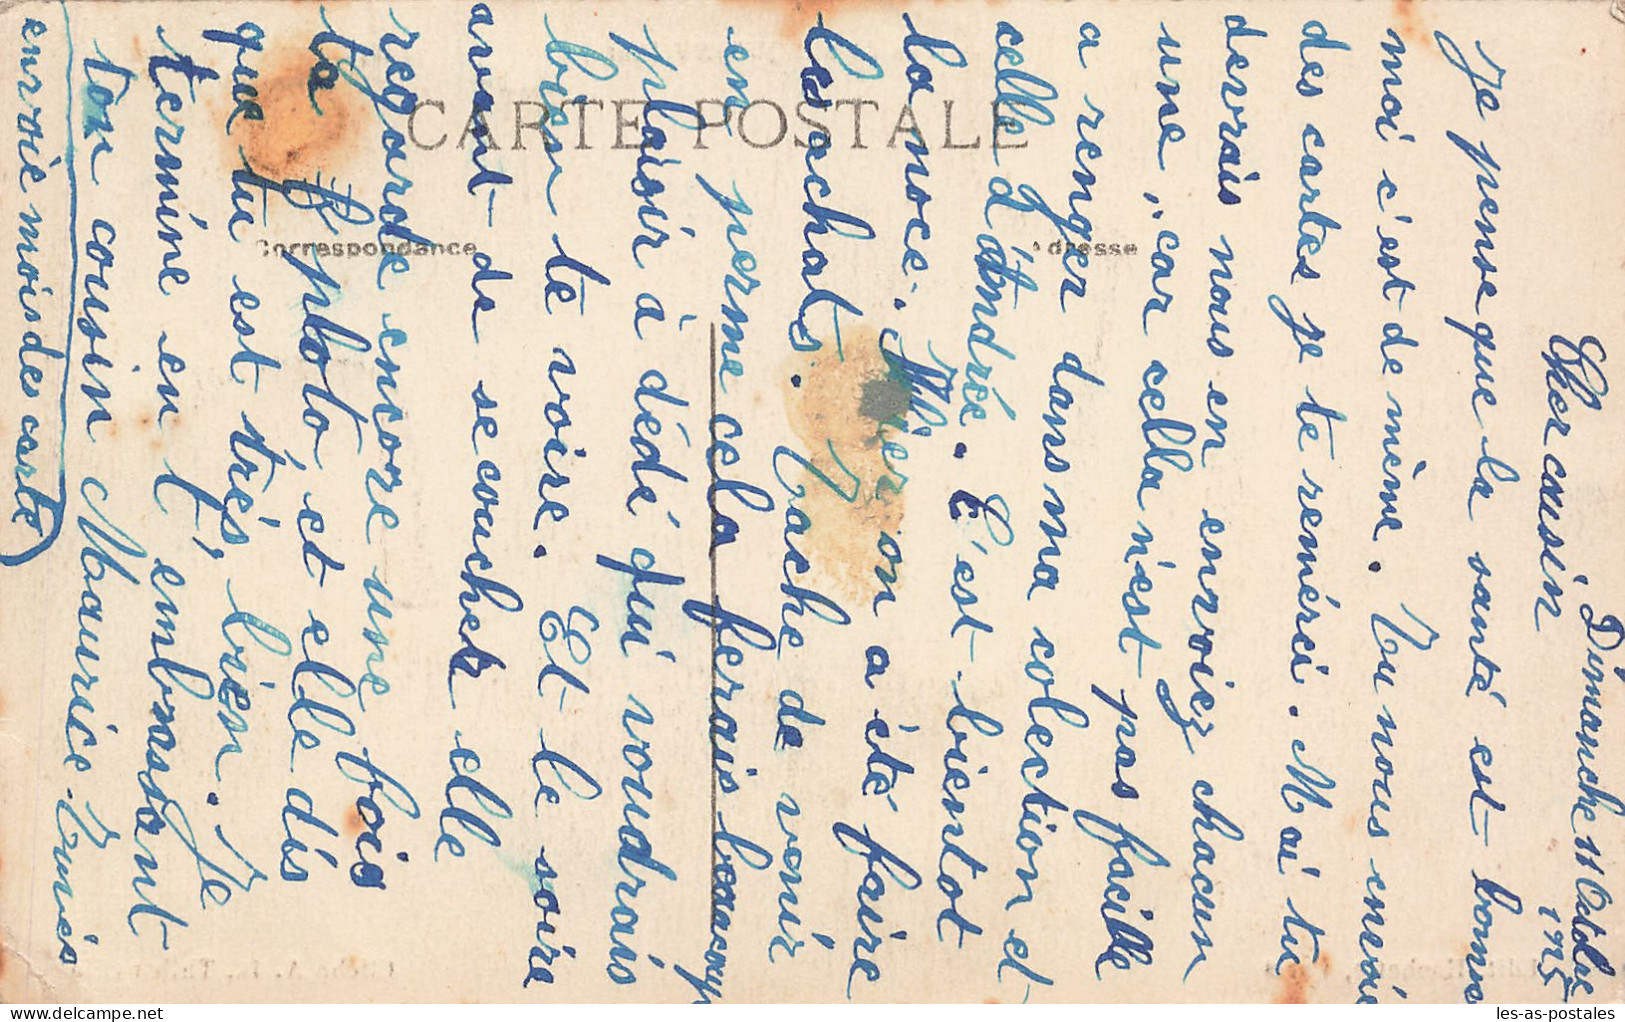 Dimanche 11 Octobre
1925
Cher cousin
Je pense que la santé est bonne
moi c'est de même. Tu nous envoie
des cartes je te remérci. Mai tu
devrais nous en envoiez chacun
une, car cella n'est pas facille
a renger dans ma colection et
celle d'Andrée. C'est bientot
la noce. Hier on a été faire
les achats. Tache de venir
en perme cela ferais beaucoup
plaisir à dédé qui voudrais
bien te voire. Et le soire
avant de se coucher elle
regarde encore une fois
ta photo, et elle dis
que tu est très, bien. Je
termine en t'embrassant
ton cousin Maurice.
envoie mois des carte
CARTE POSTALE
Correspondance
Adresse
les-as-postales